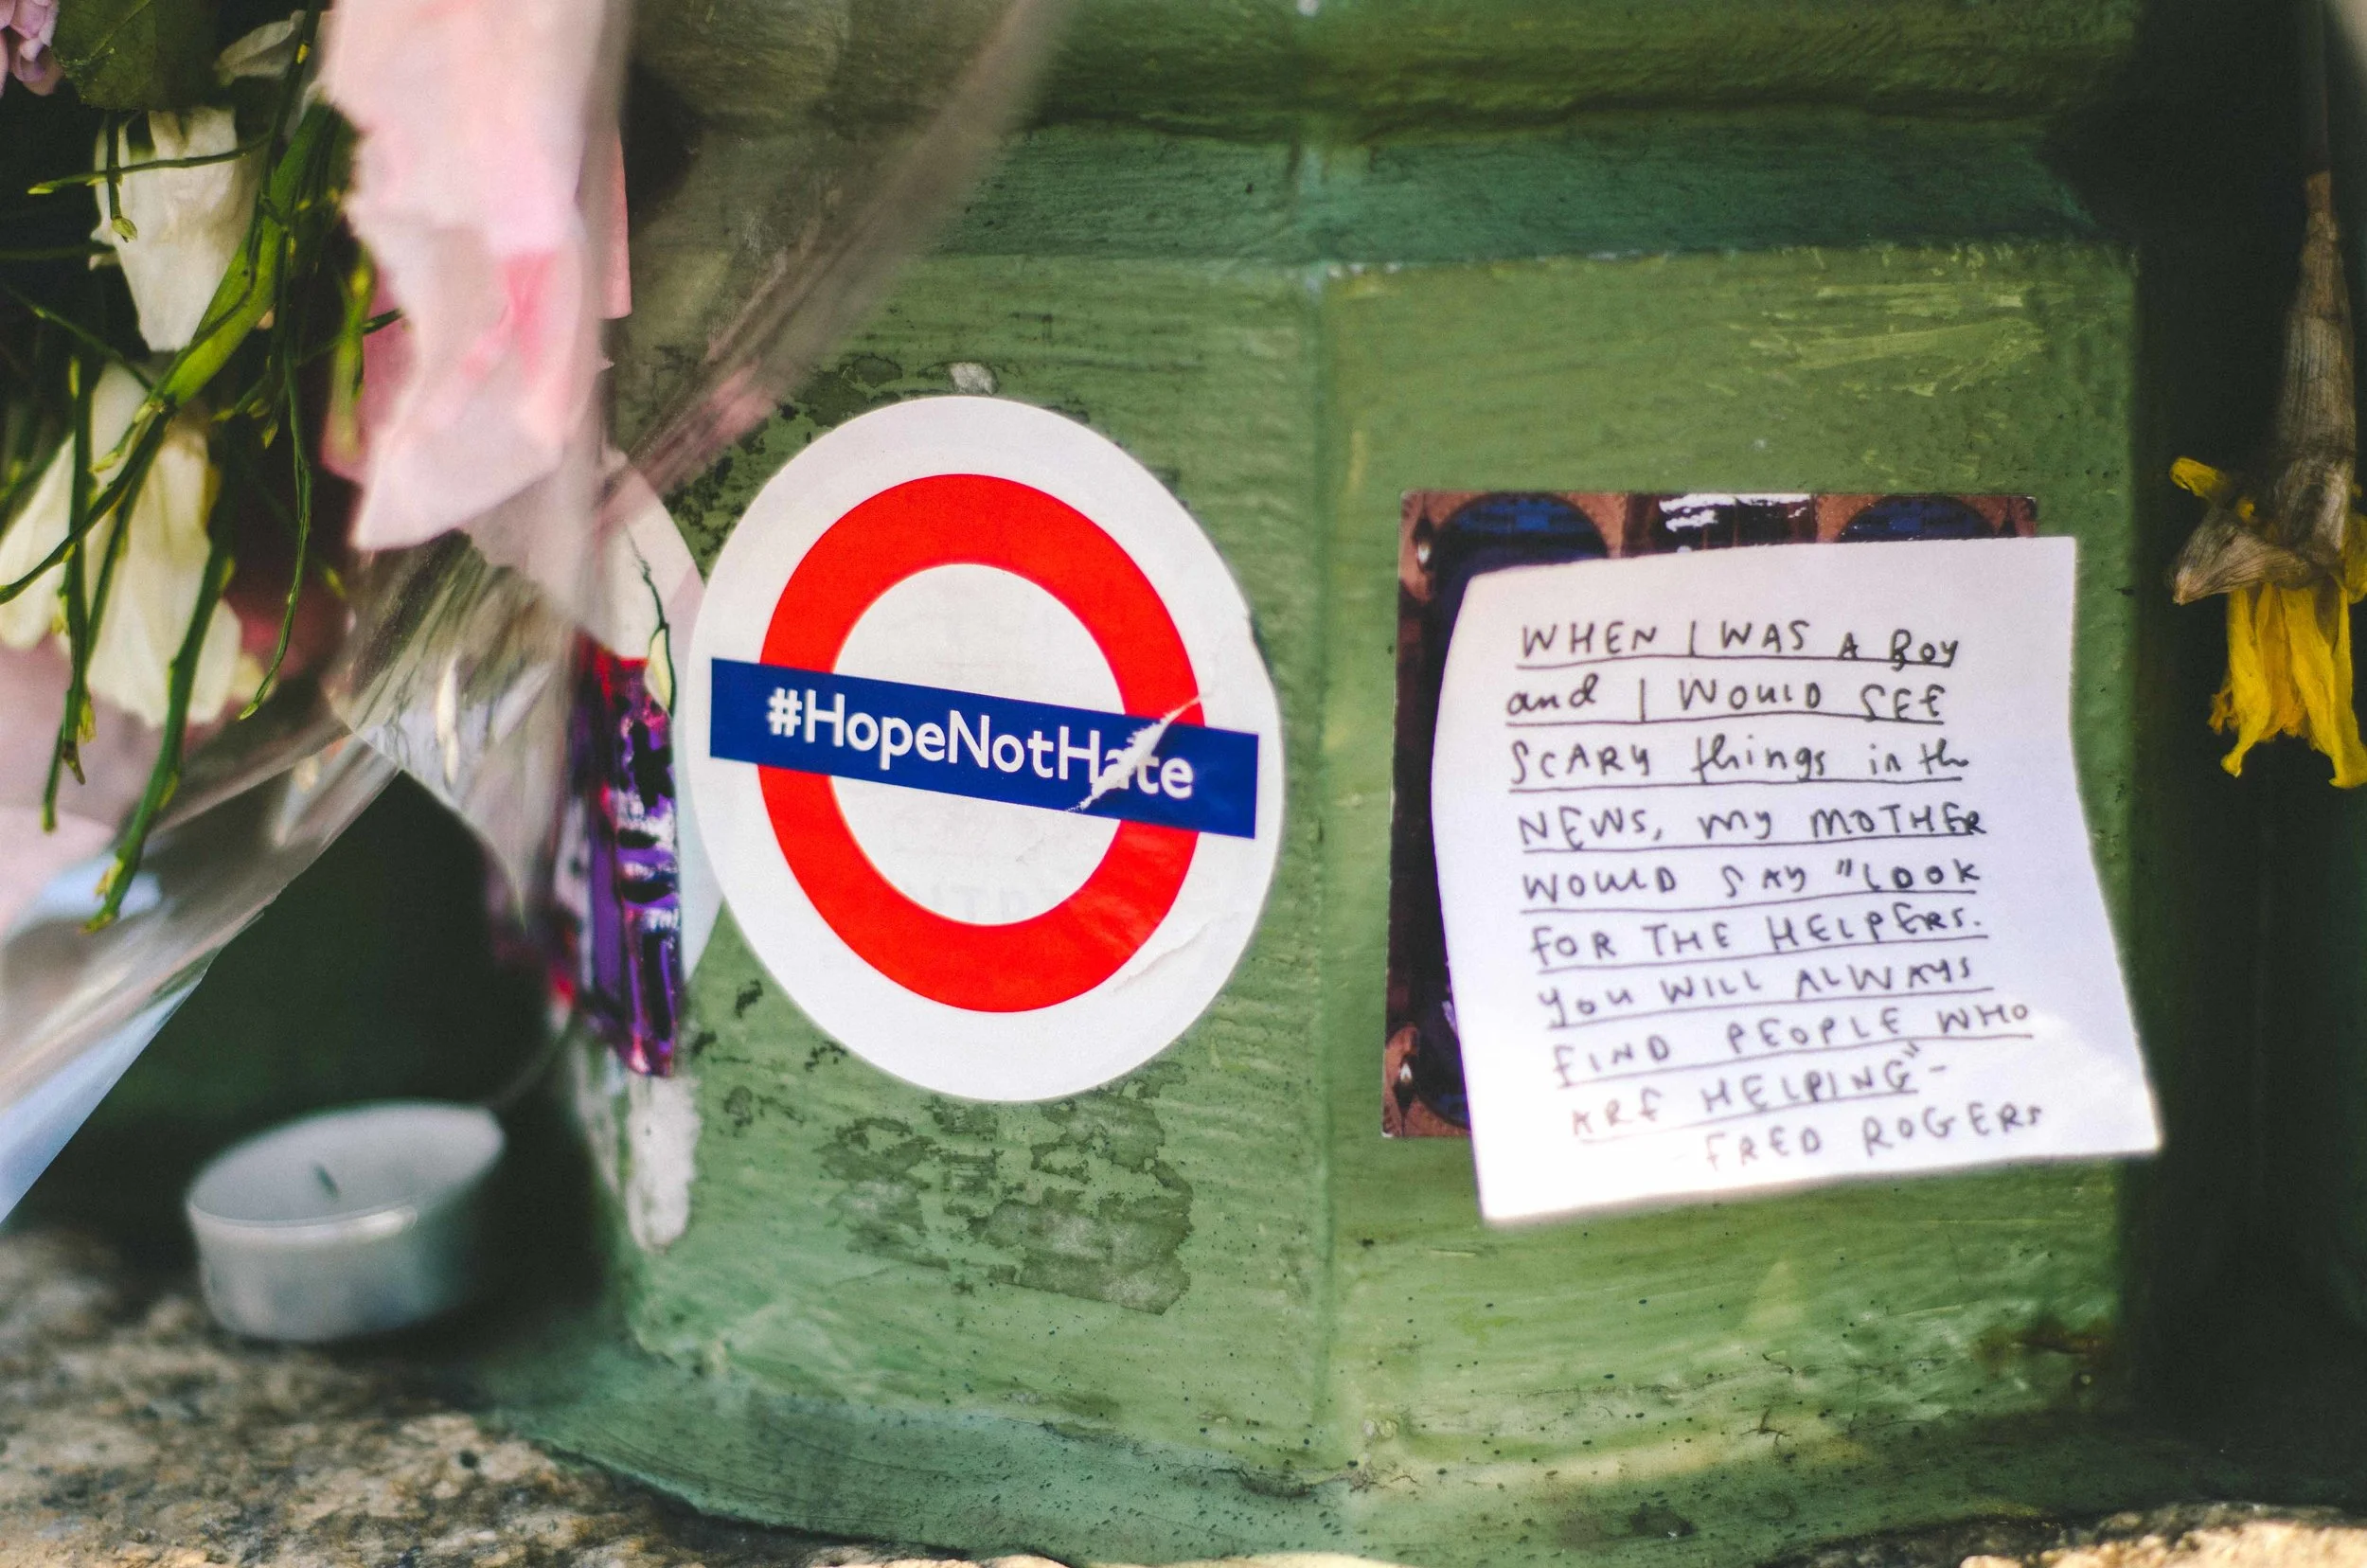 #HopeNotHate
WHEN I WAS A BOY
and I WOULD SEE
SCARY things in th
NEWS, my MOTHER
WOULD SAY "LOOK
FOR THE HELPERS.
you WILL ALWAYS
FIND PEOPLE WHO
ARE HELPING" -
FRED ROGERS